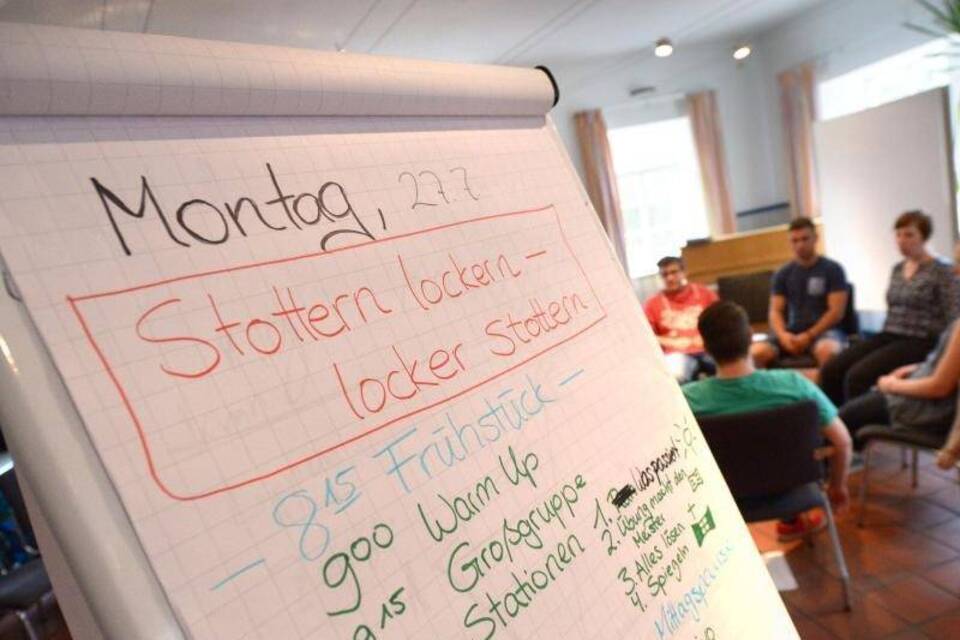 Montag, 27.7
Stottern lockern -
locker Stottern
- 8 15 Frühstück -
9 00 Warm Up
9 15 Großgruppe
Stationen
1. Was passiert
2. Übung macht den
Meister
3. Alles lösen +
4. Spiegeln
Mittagspause